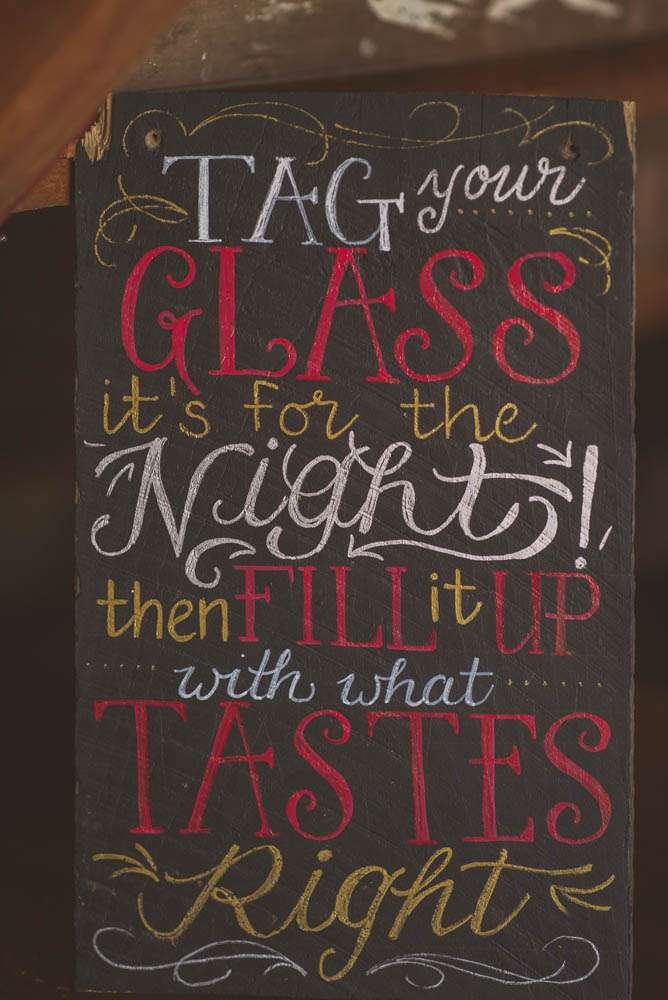 TAG your
GLASS
it's for the
Night!
then FILL it UP
with what
TASTES
Right